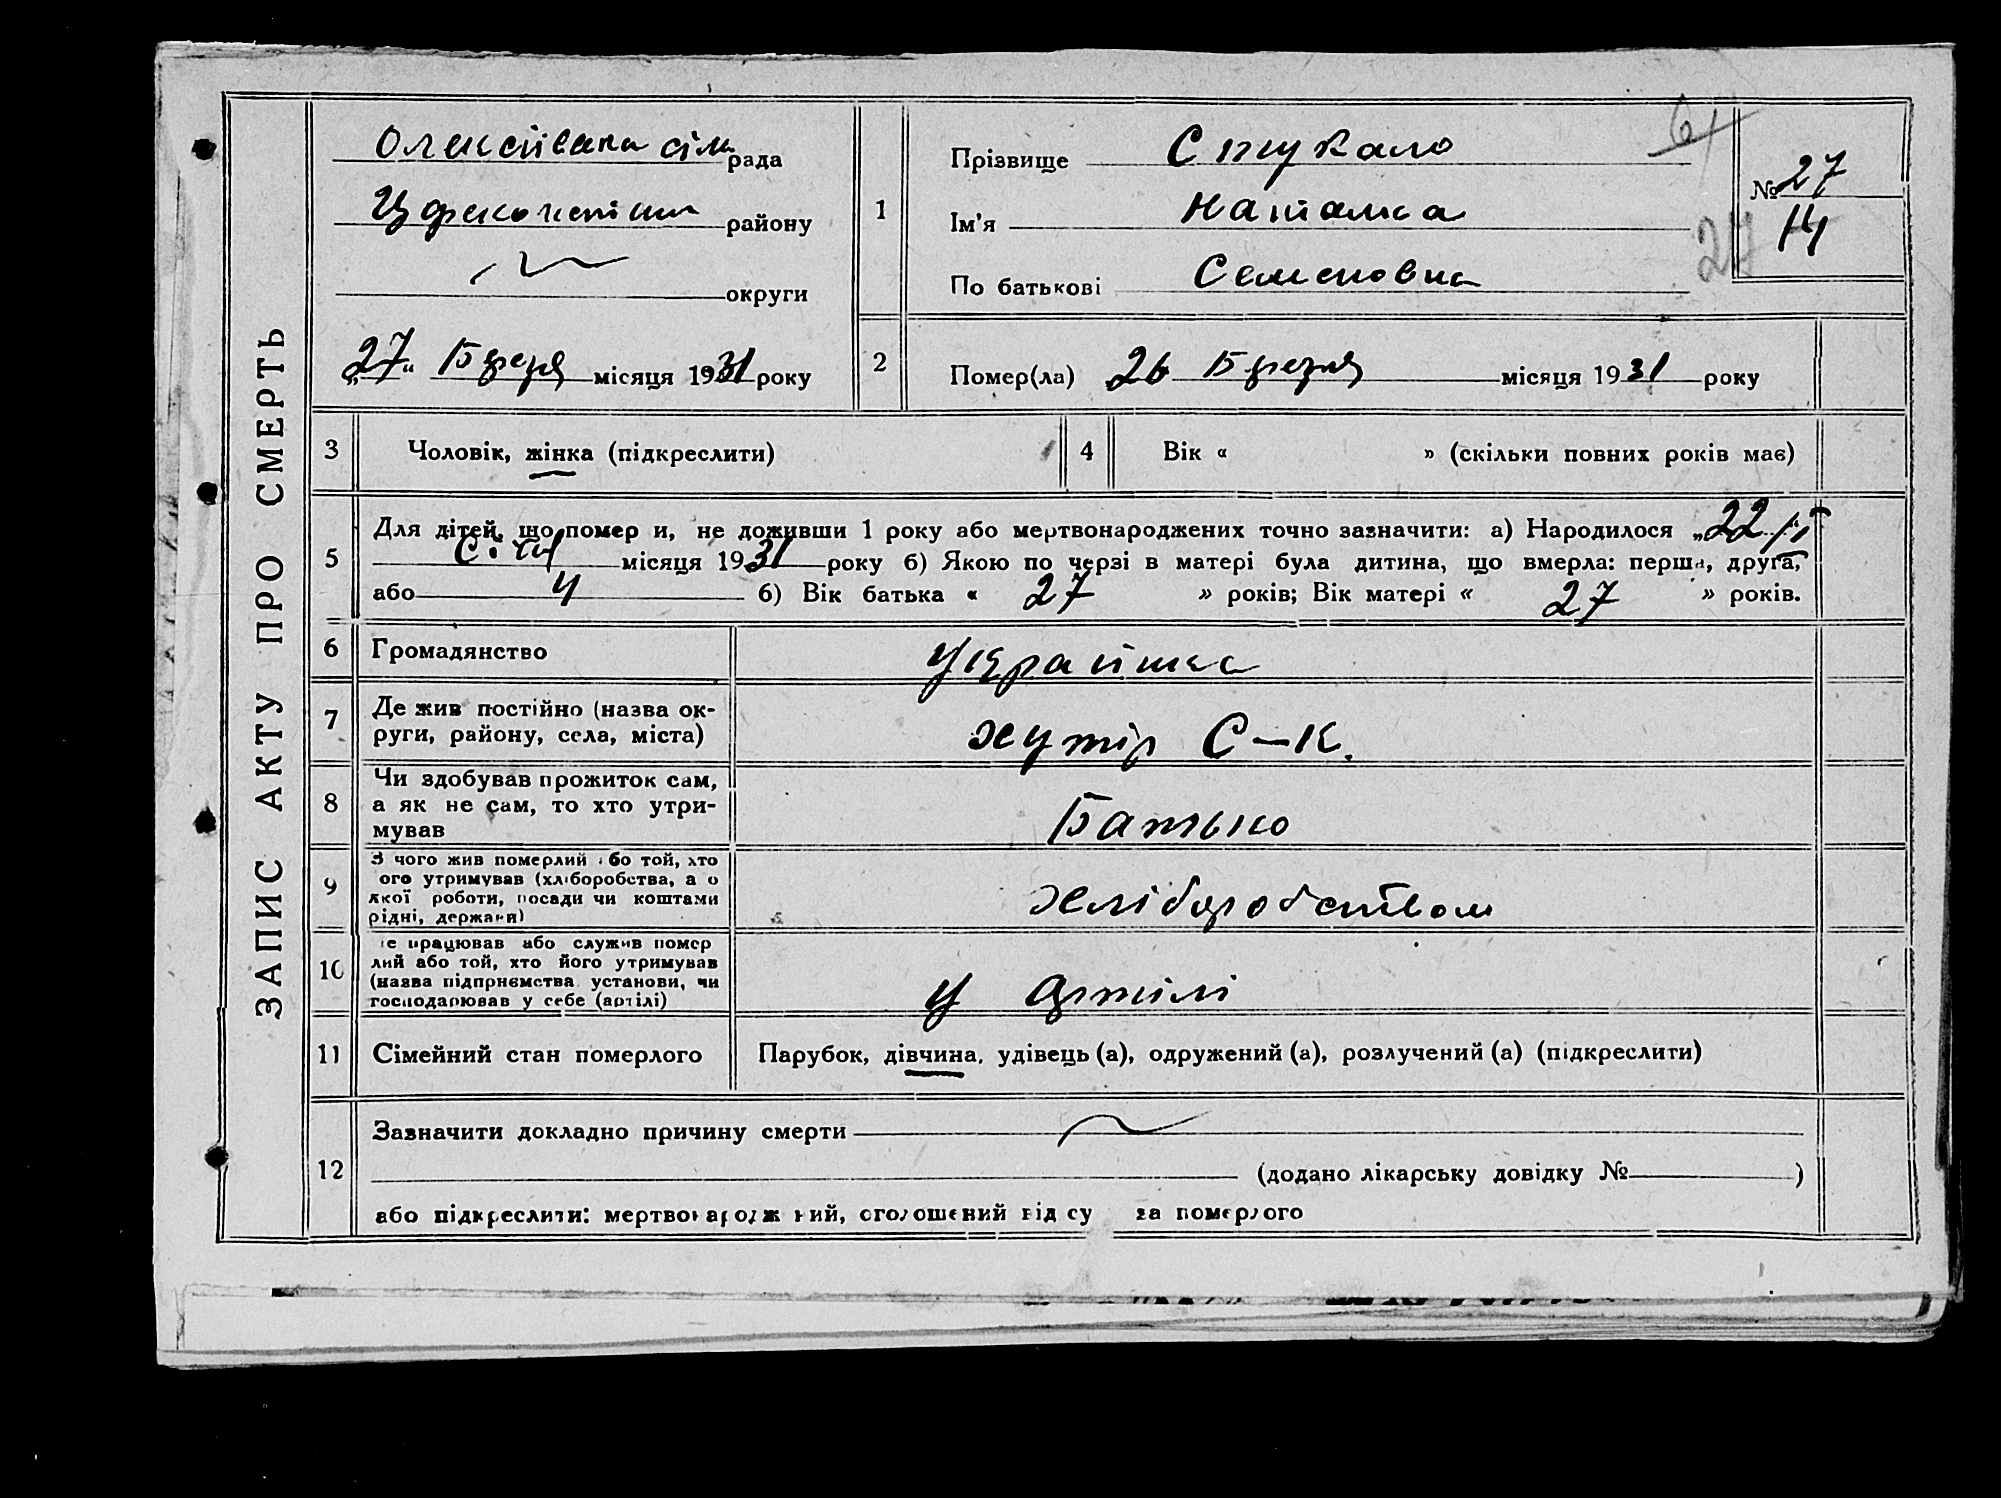 ЗАПИС АКТУ ПРО СМЕРТЬ
Олексіївська сіль рада
району
округи
„27“ Березня місяця 1931 року
1
Прізвище Стукало
Ім'я Наталка
По батькові Семеновна
№ 27
14
27
2
Помер(ла) 26 Березня місяця 1931 року
3
Чоловік, жінка (підкреслити)
4
Вік « » (скільки повних років має)
5
Для дітей, що помер и, не доживши 1 року або мертвонароджених точно зазначити: а) Народилося „22/
місяця 1931 року б) Якою по черзі в матері була дитина, що вмерла: перша, друга,
або 4 б) Вік батька « 27 » років; Вік матері « 27 » років.
6
Громадянство
Українка
7
Де жив постійно (назва ок-
руги, району, села, міста)
хутір С–К.
8
Чи здобував прожиток сам,
а як не сам, то хто утри-
мував
Батько
9
З чого жив померлий або той, хто
ого утримував (хліборобства, а о
якої роботи, посади чи коштами
рідні, держави)
хліборобством
10
е працював або служив помер
лий або той, хто його утримував
(назва підприємства установи, чи
господарював у себе (артілі)
у артілі
11
Сімейний стан померлого
Парубок, дівчина, удівець (а), одружений (а), розлучений (а) (підкреслити)
12
Зазначити докладно причину смерти
(додано лікарську довідку № )
або підкреслити: мертвонароджений, оголошений від су за померлого